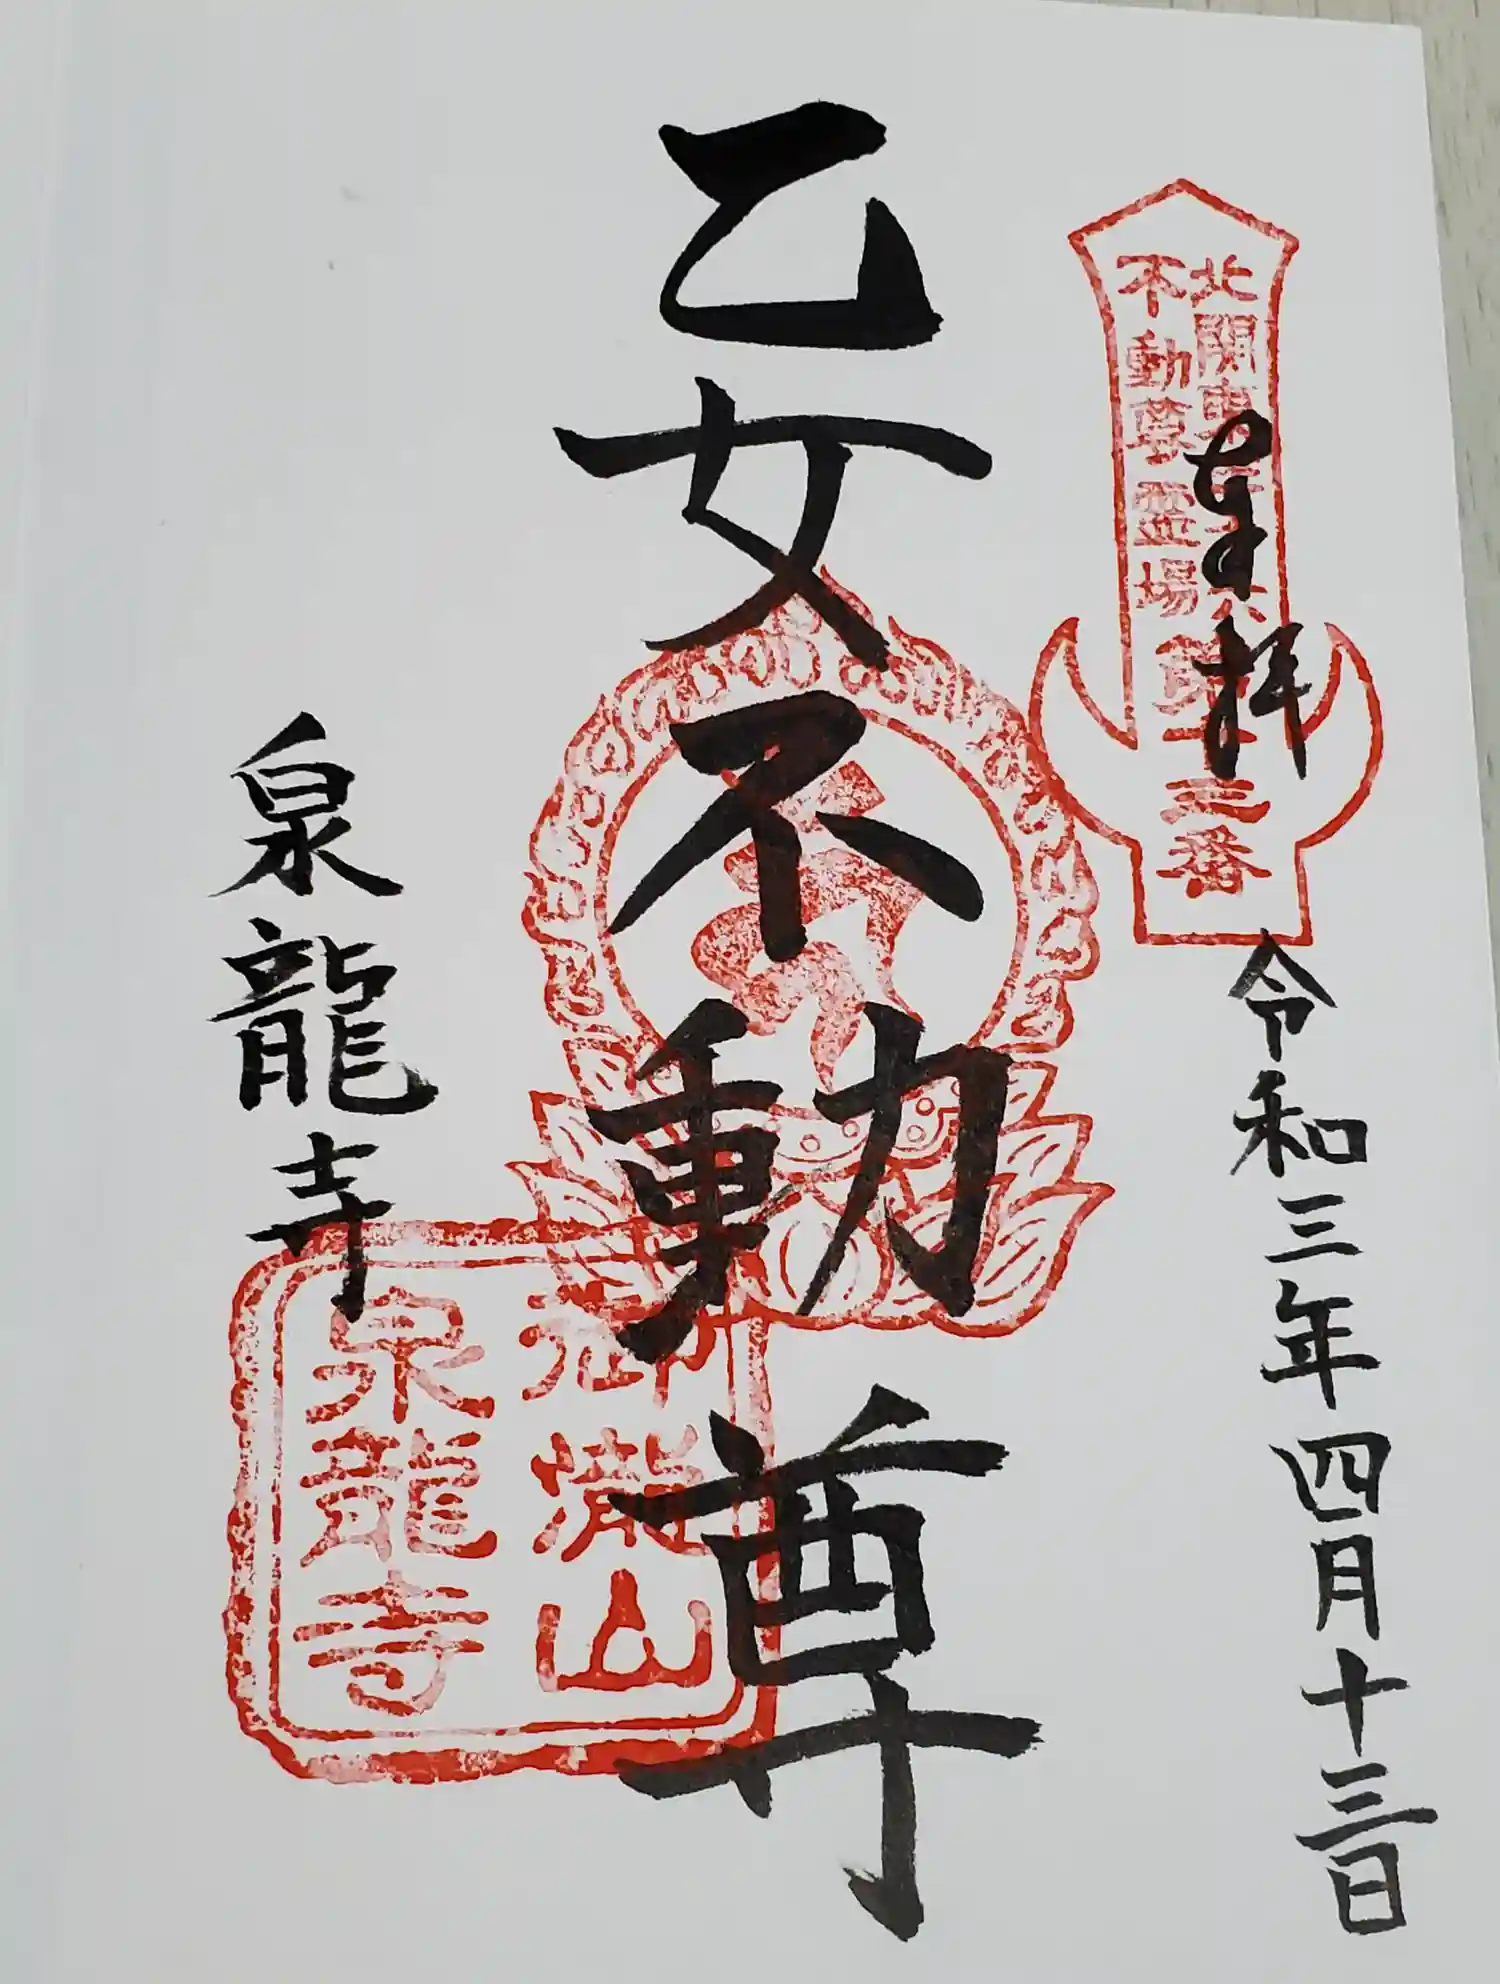 北関東三十六
不動尊霊場
第十三番
奉拝
令和三年四月十三日
乙女不動尊
瀧山
泉龍寺
泉龍寺